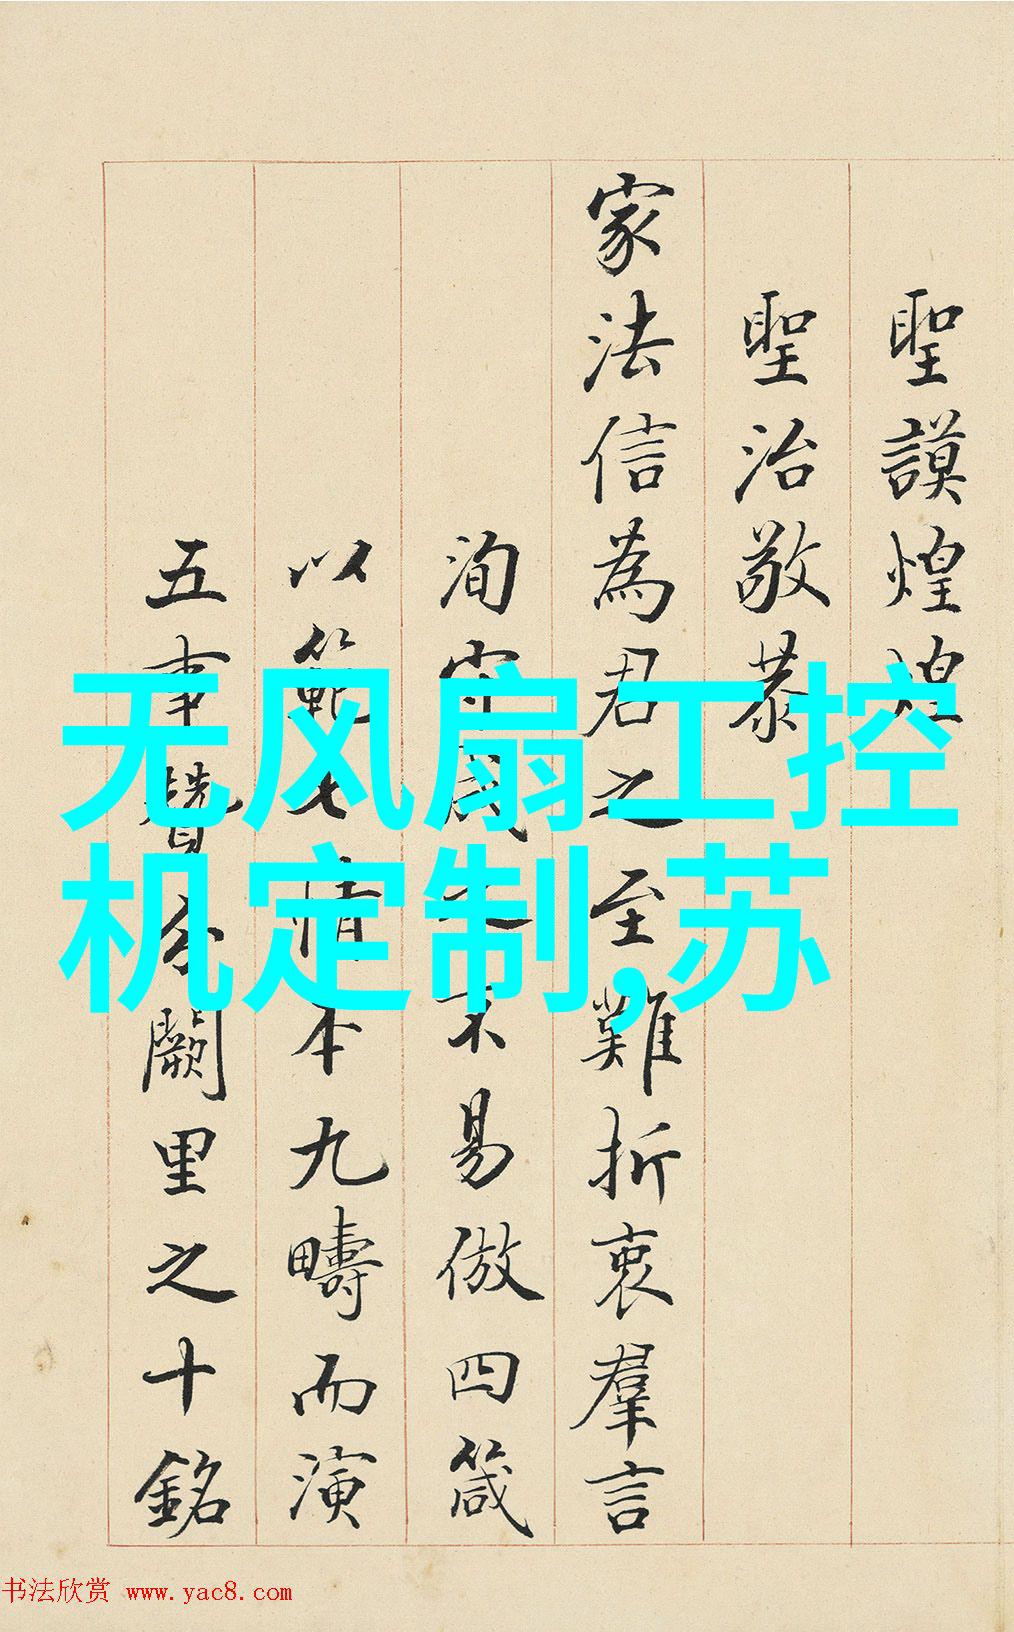 聖謨煌煌
聖治敬恭
家法信為君之至難折衷羣言
洵守成之不易倣四箴
以範七情本九疇而演
五事闕里之十銘
无风扇工控
机定制,苏
书法欣赏 www.yac8.com